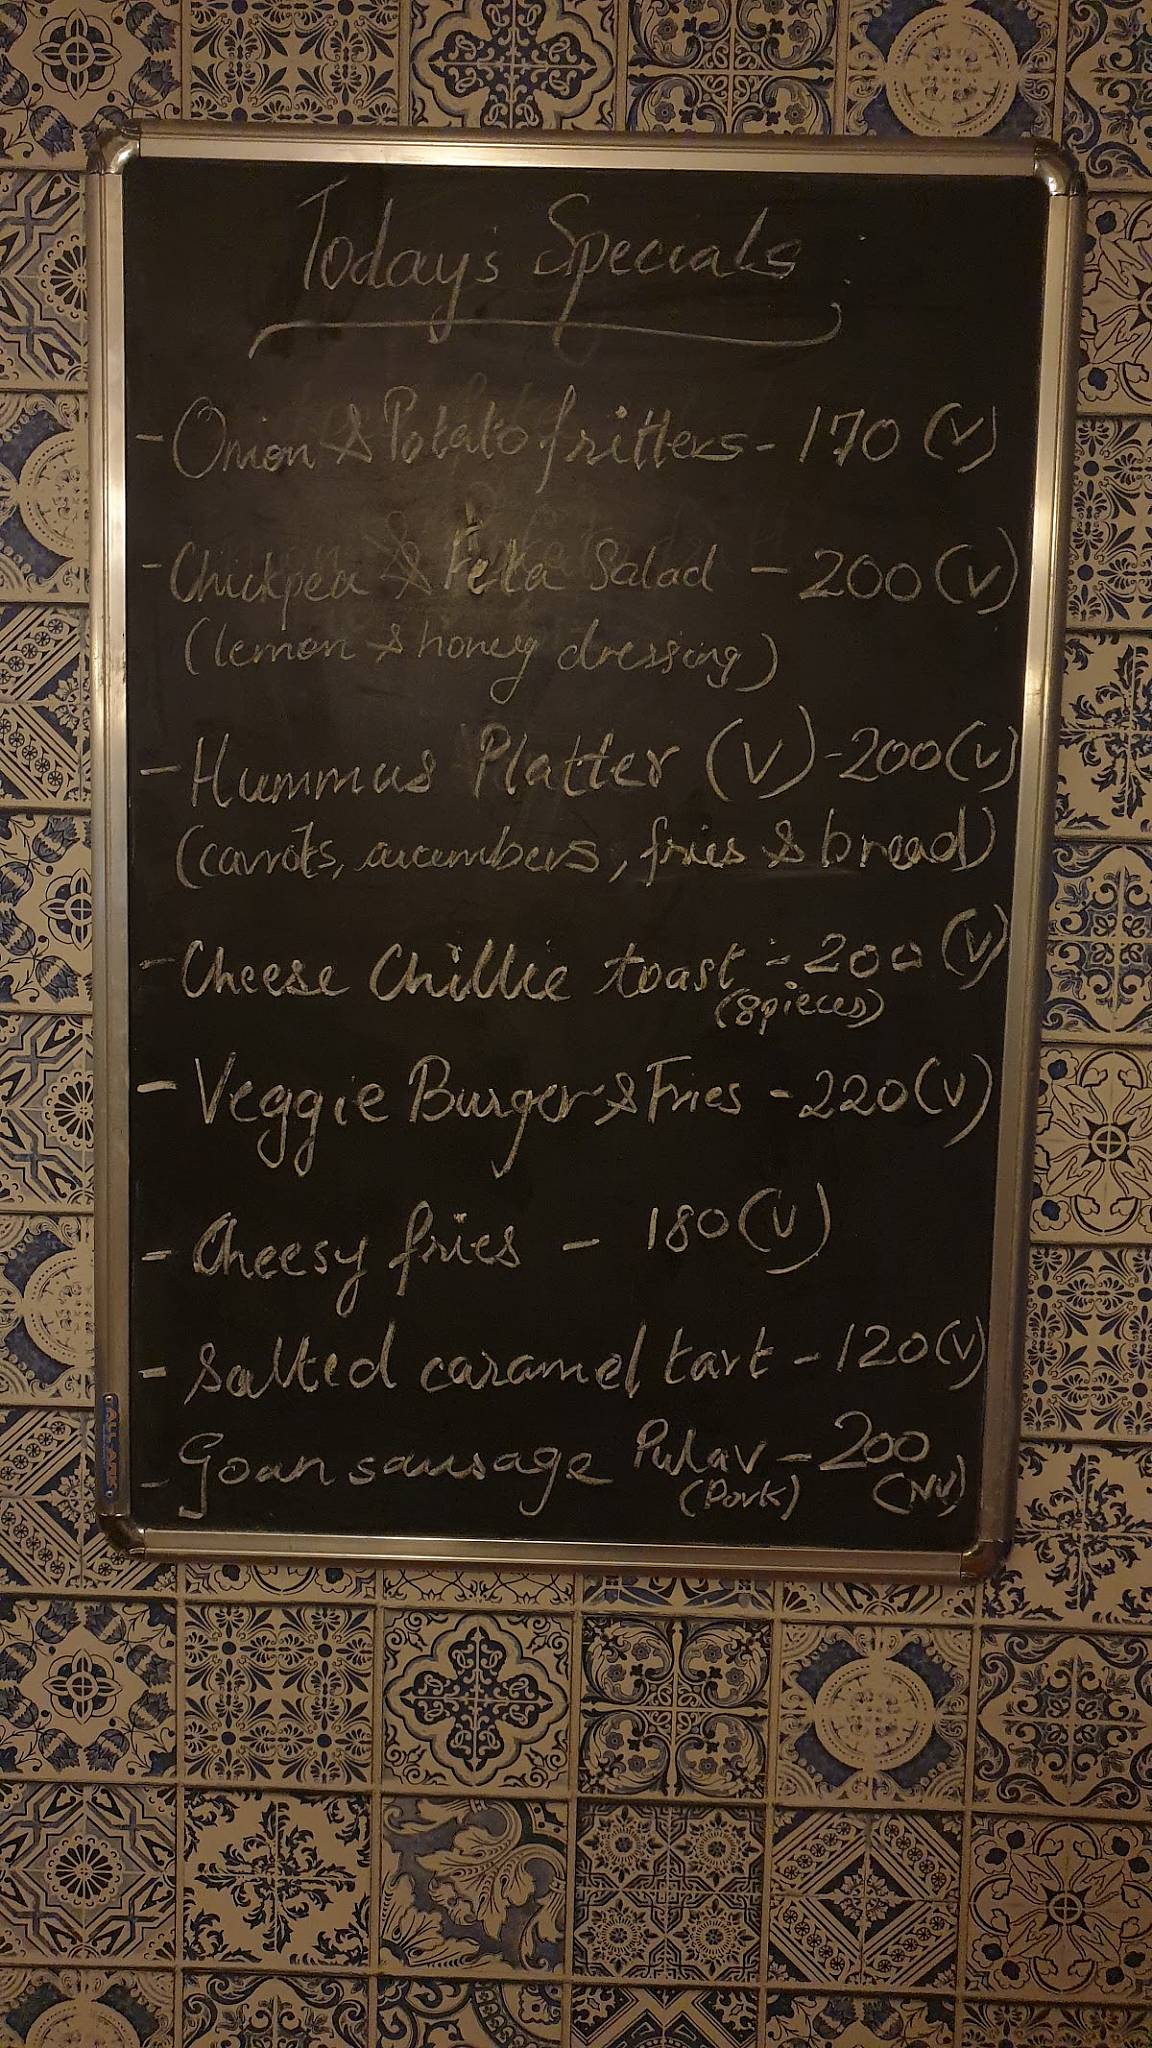 Today's Specials :
- Onion & Potato fritters - 170 (V)
- Chickpea & Feta Salad - 200 (V)
(lemon & honey dressing)
- Hummus Platter (V) - 200 (V)
(carrots, cucumbers, fries & bread)
- Cheese Chillie toast - 200 (V)
(8 pieces)
- Veggie Burger & Fries - 220 (V)
- Cheesy fries - 180 (V)
- Salted caramel tart - 120 (V)
- Goan sausage Pulav - 200
(Pork) (NV)